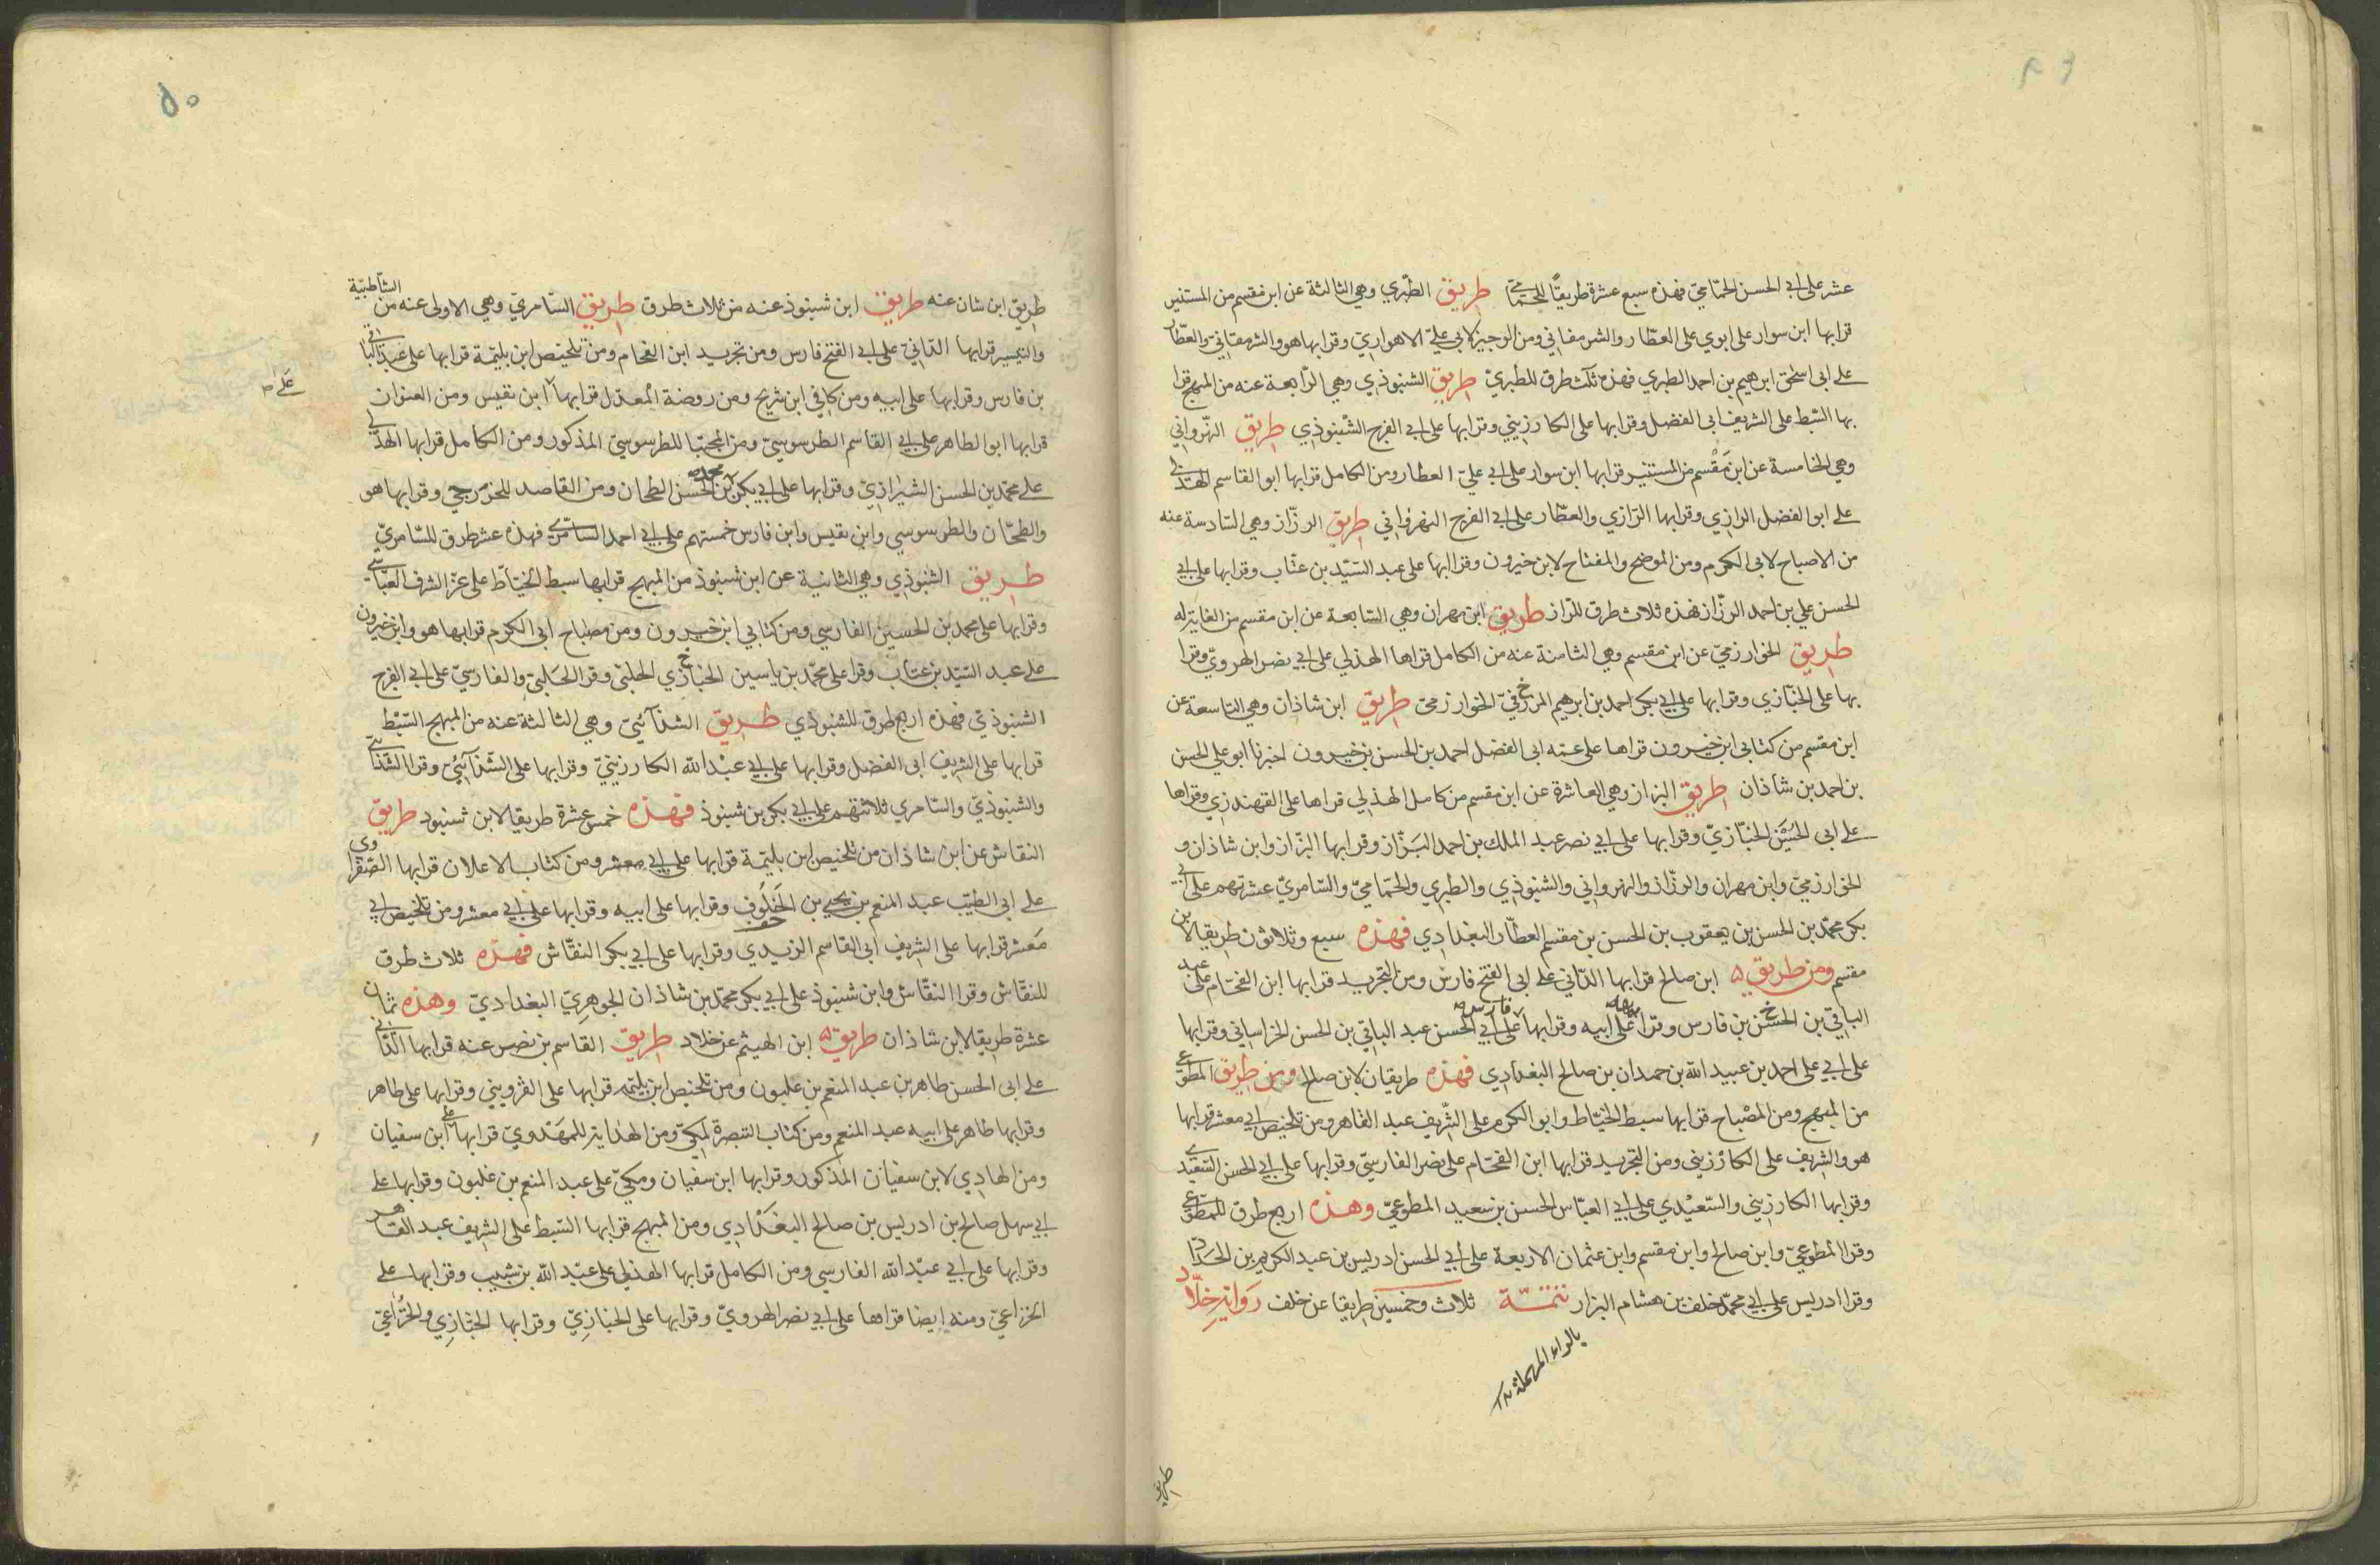 عشر على ابي الحسن الحمّامي فهذه سبع عشرة طريقاً للحمّامي طريق الطبري وهي الثالثة عن ابن مقسم من المستنير
قرا بها ابن سوار على ابوي على العطار والشرمقاني ومن الوجيز لابي عليّ الاهوازي وقرا بها هو والشرمقاني والعطّار
على ابى اسحق ابرهيم بن احمد الطبري فهذه ثلث طرق للطبريّ طريق الشنبوذي وهي الرّابعة عنه من المبهج قرا
بها السّبط على الشريف ابى الفضل وقرا بها على الكارزيني وقرا بها على ابي الفرج الشنبوذي طريق النهرواني
وهي الخامسة عن ابن مَقْسم من المستنير قرا بها ابن سوار على ابي عليّ العطار ومن الكامل قرا بها ابو القاسم الهذلي
على ابو الفضل الرازي وقرا بها الرّازي والعطّار على ابي الفرج النهرواني طريق الرزّاز وهي السّادسة عنه
من الاصباح لابى الكرم ومن الموضح والمفتاح لابن خيرون وقرا بها على عبد السيّد بن عتّاب وقرا بها على ابي
الحسن علي بن احمد الرزّاز فهذه ثلاث طرق للرّزاز طريق ابن مهران وهي السّابعة عن ابن مقسم من الغاية له
طريق الخوارزميّ عن ابن مقسم وهي الثامنة عنه من الكامل قراها الهذلي على ابي نصر الهرويّ وقرا
بها على الخبّازي وقرا بها على ابي بكر احمد بن ابرهيم المروزي الخوارزميّ طريق ابن شاذان وهي التاسعة عن
ابن مقسم من كتابي ابن خيرون قراها على عمّه ابى الفضل احمد بن الحسن بن خيرون اخبرنا ابو علي الحسن
بن احمد بن شاذان طريق البزاز وهي العاشرة عن ابن مقسم من كامل الهذلي قراها على القهندزي وقراها
على ابى الحُسَين الخبّازيّ وقرا بها على ابي نصر عبد الملك بن احمد البَزّاز وقرا بها البزّاز وابن شاذان و
الخوارزميّ وابن مهران والرزّاز والنهرواني والشنبوذي والطبري والحمّاميّ والسّامريّ عشرتهم على ابي
بكر محمّد بن الحسن بن يعقوب بن الحسن بن مقسم العطّار البغدادي فهذه سبع وثلاثون طريقا لابن
مقسم ومن طريق ابن صالح قرا بها الدّاني على ابى الفتح فارس ومن التجريد قرا بها ابن الفحّام على عبد
الباقي بن الحسن بن فارس وقرا بها على ابيه وقرا بها فارس على ابي الحسن عبد الباقي بن الحسن الخراساني وقرا بها
على ابي على احمد بن عبيد الله بن حمدان بن صالح البغدادي فهذه طريقان لابن صالح ومن طريق المطوّعي
من المبهج ومن المصْباح قرا بها سبط الخيّاط وابو الكرم على الشّريف عبد القاهر ومن تلخيص ابي معشر قرا بها
هو والشريف على الكارْزيني ومن التجريد قرا بها ابن الفحّام على نصر الفارسيّ وقرا بها على ابي الحسن السّعيدي
وقرا بها الكارزيني والسّعيْدي على ابي العبّاس الحسن بن سعيد المطوعيّ وهذه اربع طرق للمطوعي
وقرا المطوعيّ وابن صالح وابن مقسم وابن عثمان الاربعة على ابي الحسن ادريس بن عبد الكريم بن الحداد
وقرا ادريس على ابي محمّد خلف بن هشام البزار تتمّة ثلاث وخمسين طريقا عن خلف رَوَاية خلّاد
بالراء المهملة
طريق
٥٠
طريق ابن شان عنه طريق ابن شنبوذ عنه من ثلاث طرق طريق السّامريّ وهي الاولى عنه من الشّاطبيّة
والتيسير قرا بها الدّانيّ على ابي الفتح فارس ومن تجريد ابن الفحام ومن تلخيص ابن بليّمة قرا بها على عبد الباقي
بن فارس وقرا بها على ابيه ومن كافي ابن شريح ومن روضة المُعدّل قرا بها ابن نفيس ومن العنوان
على
قرا بها ابو الطاهر على ابي القاسم الطرسوسيّ ومن المجتبا للطرسوسيّ المذكور ومن الكامل قرا بها الهذلي
على محمّد بن الحسن الشيرازيّ وقرا بها على ابي بكر محمد بن الحسن الطحان ومن القاصد للخزرجي وقرا بها هو
والطحّان والطرسوسي وابن نفيس وابن فارس خمستهم على ابي احمد السامّري فهذه عشر طرق للسّامريّ
طريق الشنبوذي وهي الثانية عن ابن شنبوذ من المبهج قرا بها سبط الخيّاط على عزّ الشرف العبّاسي
وقرا بها على محمد بن الحسين الفارسي ومن كتابي ابن خيرون ومن مصْباح ابى الكرم قرا بها هو وابن خيرون
على عبد السّيّد بن عتاب وقرا على محمّد بن ياسين الحلبي وقرا الحلبيّ والفارسيّ على ابي الفرج
الشنبوذيّ فهذه اربع طرق للشنبوذي طريق الشذآئيّ وهي الثالثة عنه من المبهج السّبْط
قرا بها على الشريف ابى الفضل وقرا بها على ابي عبْد الله الكارزينيّ وقرا بها على الشّذآئيّ وقرا الشّذائي
والشنبوذيّ والسّامري ثلاثتهم على ابي بكر بن شنبوذ فهذه خمس عشرة طريقا لابن شنبوذ طريق
النقاش عن ابن شاذان من تلخيص ابن بليّمة قرا بها على ابي معشر ومن كتاب الاعلان قرا بها الصّفراوي
على ابى الطيّب عبد المنعم بن يحيى بن الخَلُوف وقرا بها على ابيه وقرا بها على ابي معشر ومن تلخيص ابي
مَعشر قرا بها على الشريف ابى القاسم الزيدي وقرا بها على ابي بكر النقّاش فهذه ثلاث طرق
للنقّاش وقرا النقّاش وابن شنبوذ على ابي بكر محمّد بن شاذان الجوهريّ البغداديّ وهذه ثمان
عشرة طريقا لابن شاذان طريق ابن الهيثم عن خلاد طريق القاسم بن نصر عنه قرا بها الدّاني
على ابى الحسن طاهر بن عبد المنعم بن غلبون ومن تلخيص ابن بليّمه قرا بها على القزويني وقرا بها على طاهر
وقرا بها طاهر على ابيه عبد المنعم ومن كتاب التبصرة لمكيّ ومن الهداية للمهْدويّ قرا بها على ابن سفيان
ومن الهادي لابن سفيان المذكور وقرا بها ابن سفيان ومكيّ على عبد المنعم بن غلبون وقرا بها على
ابي سهل صالح بن ادريس بن صالح البغدادي ومن المبهج قرا بها السّبط على الشريف عبد القاهر
وقرا بها على ابي عبْد الله الفارسي ومن الكامل قرا بها الهذلي على عبْد الله بن شبيب وقرا بها على
الخزاعيّ ومنه ايضا قراها على ابي نصر الهرويّ وقرا بها على الخبّازيّ وقرا بها الخبّازي والخُزاعيّ